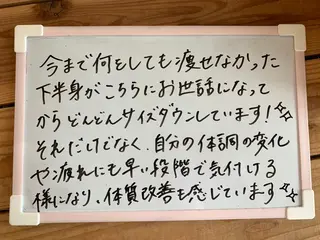 今まで何をしても痩せなかった
下半身がこちらにお世話になって
からどんどんサイズダウンしています!☆☆
それだけでなく、自分の体調の変化
や疲れにも早い段階で気付ける
様になり、体質改善も感じています☆☆